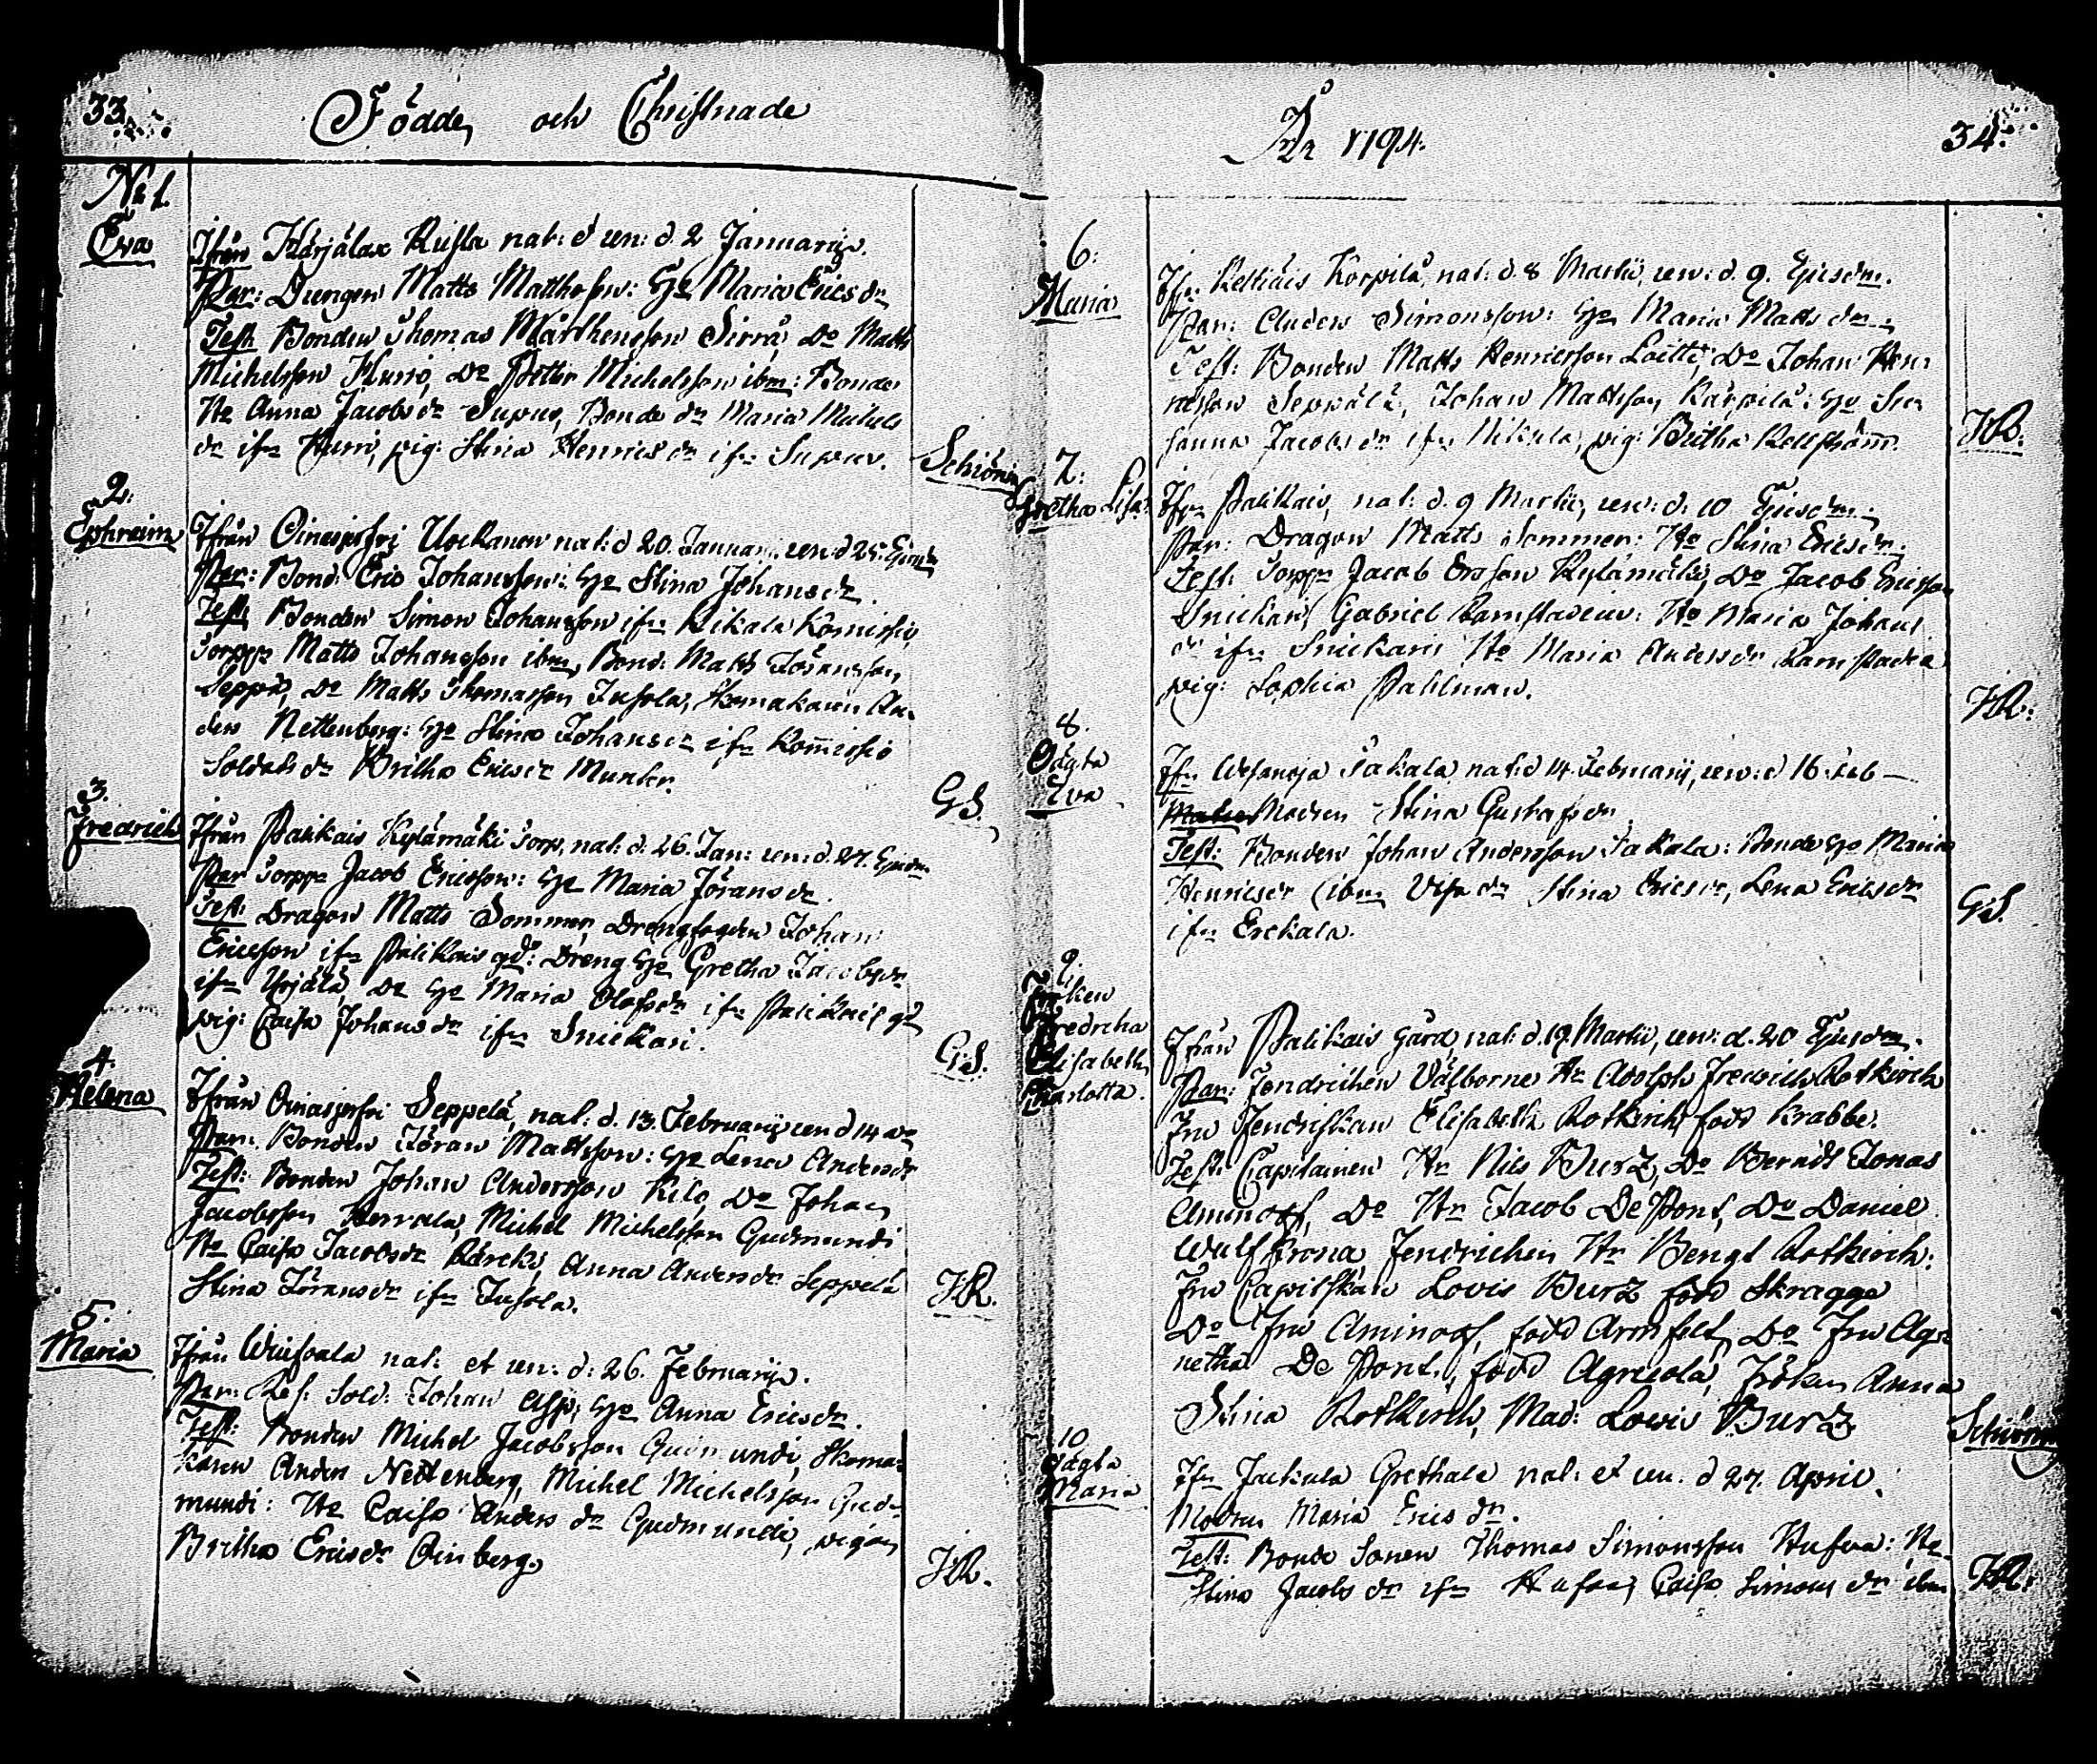 33.
Födde, och Christnade
No 1.
Eva
Ifrån Karjalax Rusla nat: & ren: d. 2 Januarii.
Par: Drengen Matts Matthsson: H:o Maria Ericsdr
Test: Bonden Thomas Marthensson Sirra, Do Matts
Michelsson Hurri, Do Petter Michelsson ibm: Bonde
H:o Anna Jacobsdr Supus, Bonde dr Maria Michels
dr ifr Hurri, pig: Stina Henricsdr ifr
2:
Ephreim
Ifrån nat: d 20. Januari, ren: d 25. Ejusdm
Par: Bond. Eric Johansson: Stina Johansdr.
Test: Bonden Simon Johansson ifr Kikala
Torpr Matts Johansson ibm, Bond: Matts Jöransson
Seppä, Do Matts Thomasson Jusola, Skomakaren An-
ders Nettenberg: Stina Johansdr ifr
Soldats dr Britha Ericsdr Munter.
G.S.
3.
Fredrich
Ifrån Palikais Kylämäki Torp, nat: d. 26. Jan: ren: d. 27. Ejusdm
Par Torpr Jacob Ericsson: Maria Jöransdr.
Test: Dragon Matts Sommer, Drengfogden Johan
Ericsson ifr Palikais gd: Dreng Gretha Jacobsdr
ifr Yrjälä, Do Maria Olofsdr ifr Palikais gd
pig: Caisa Johansdr ifr Snickari.
G.S.
4.
Helena
Ifrån Oinasjerfvi Seppelä, nat: d. 13. Februarii ren d 14 do
Par: Bonden Jöran Mattsson: Lena Andersdr
Test: Bonden Johan Andersson Kilo, Do Johan
Jacobsson Michel Michelsson Gudmundi
Caisa Jacobsdr Anna Andersdr Seppelä
Stina Jöransdr ifr Jusola.
5.
Maria
Ifrån nat: et ren: d: 26. Februarii.
Par: Sold. Johan Asp, Anna Ericsdr.
Test: Bonden Michel Jacobsson Gudmundi, Skoma-
karen Anders Nettenberg, Michel Michelsson Gud-
mundi: Caisa Anders dr Gudmundi, pigan
Britha Ericsdr Oinberg
År 1794.
34.
6:
Maria
Ifr Korpilä, nat: d. 8 Martii, ren: d. 9. Ejusdm.
Par: Anders Simonsson: Maria Matts dr.
Test: Bonden Matts Henricsson Do Johan Hen-
ricsson Seppälä, Johan Mattsson Su-
sanna Jacobs dr ifr Nikula, pig: Britha
7:
Gretha Lisa
Ifr Palikais, nat: d. 9 Martii, ren: d. 10 Ejusdm.
Par: Dragon Matts Sommer: Stina Ericsdr.
Test: Torpr Jacob Ersson Kylämäki, Do Jacob Ericsson
Snickari, Gabriel Ramstadius: Maria Johans
dr ifr Snickari Maria Andersdr Ramstadia
pig: Sophia Pahlman.
8.
Oägta
Eva
Ifr Takala nat: d 14. Februarii, ren: d 16. Feb
Modren Stina Gustafsdr
Test: Bonden Johan Andersson Takala: Bonde Maria
Henricsdr ibm Stina Ericsdr, Lena Ericsdr
ifr Erckala.
G.S.
9.
Fröken
Fredricha
Elisabeth
Charlotta.
Ifrån Palikais Gård, nat: d. 19. Martii, ren: d. 20 Ejusdm.
Par: Fendrichen Välborne Hr Adolph Fredrich Rotkirch
Fru Fendriskan Elisabeth Rotkirch född Krabbe.
Test: Capitainen Hr Nils Burz, Do Berndt Jonas
Aminoff, Do Hr Jacob De Pont, Do Daniel
Wulfkrona, Fendrichen Hr Bengt Rotkirch:
Fru Capitskan Lovis Burz född Skragge
Do Fru Aminoff, född Armfelt, Do Fru Ag-
netha De Pont, född Agricola, Fröken Anna
Stina Rotkirch, Mad: Lovis Burz
10
Oägta
Maria
Ifr Grethala nat: et ren. d 27. April.
Modren Maria Erics dr.
Test: Bonde Sonen Thomas Simonsson Hufva:
Stina Jacobs dr ifr Hufva, Caisa Simons dr ibm